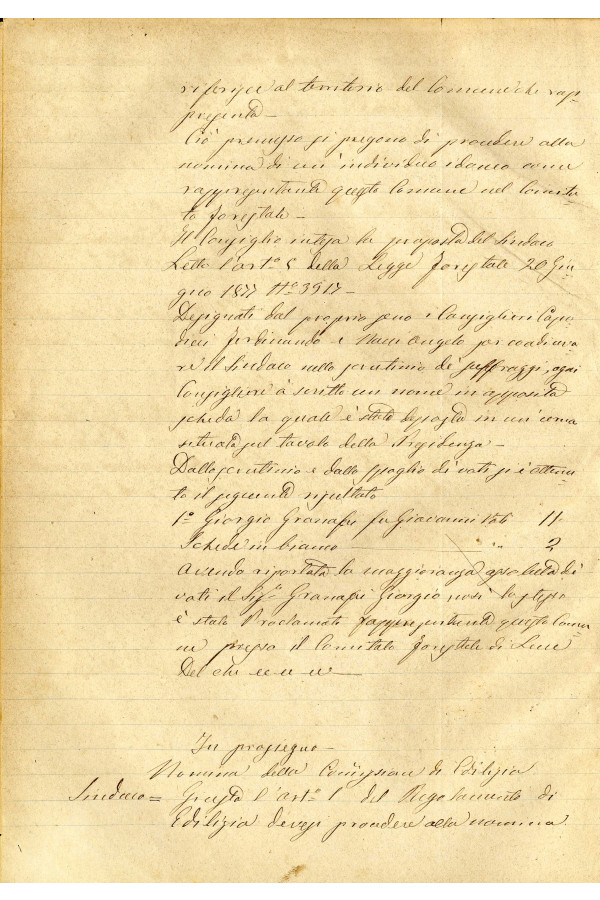 riferisce al territorio del Comune che rap=
presenta –
Ciò premesso si pregono di procedere alla
nomina di un individuo idoneo come
rappresentante questo Comune nel Comita=
to forestale –
Il Consiglio intesa la proposta del Sindaco
Letto l'art.º 5 della Legge forestale 20 Giu=
gno 1877 Nº 3917 –
Designati dal proprio seno i Consiglieri Capo=
dieci Ferdinando e Nacci Angelo per coadiuva=
re il Sindaco nello scrutinio dei suffraggi, ogni
Consigliere à scritto un nome in apposita
scheda la quale è stata deposta in un'urna
situata sul tavolo della Presidenza –
Dallo scrutinio e dallo spoglio di voti si è ottenu=
to il seguente risultato
1º Giorgio Granafei fu Giovanni Voti 11
Schede in bianco – " 2
Avendo riportata la maggioranza assoluta di
voti il Sig.r Granafei Giorgio così lo stesso
è stato Proclamato rappresentante questo Comu=
ne presso il Comitato forestale di Lecce
Del che
In prosseguo –
Nomina della Commissione di Edilizia
Sindaco = Giusta l'art.º 1 del Regolamento di
Edilizia devesi procedere alla nomina